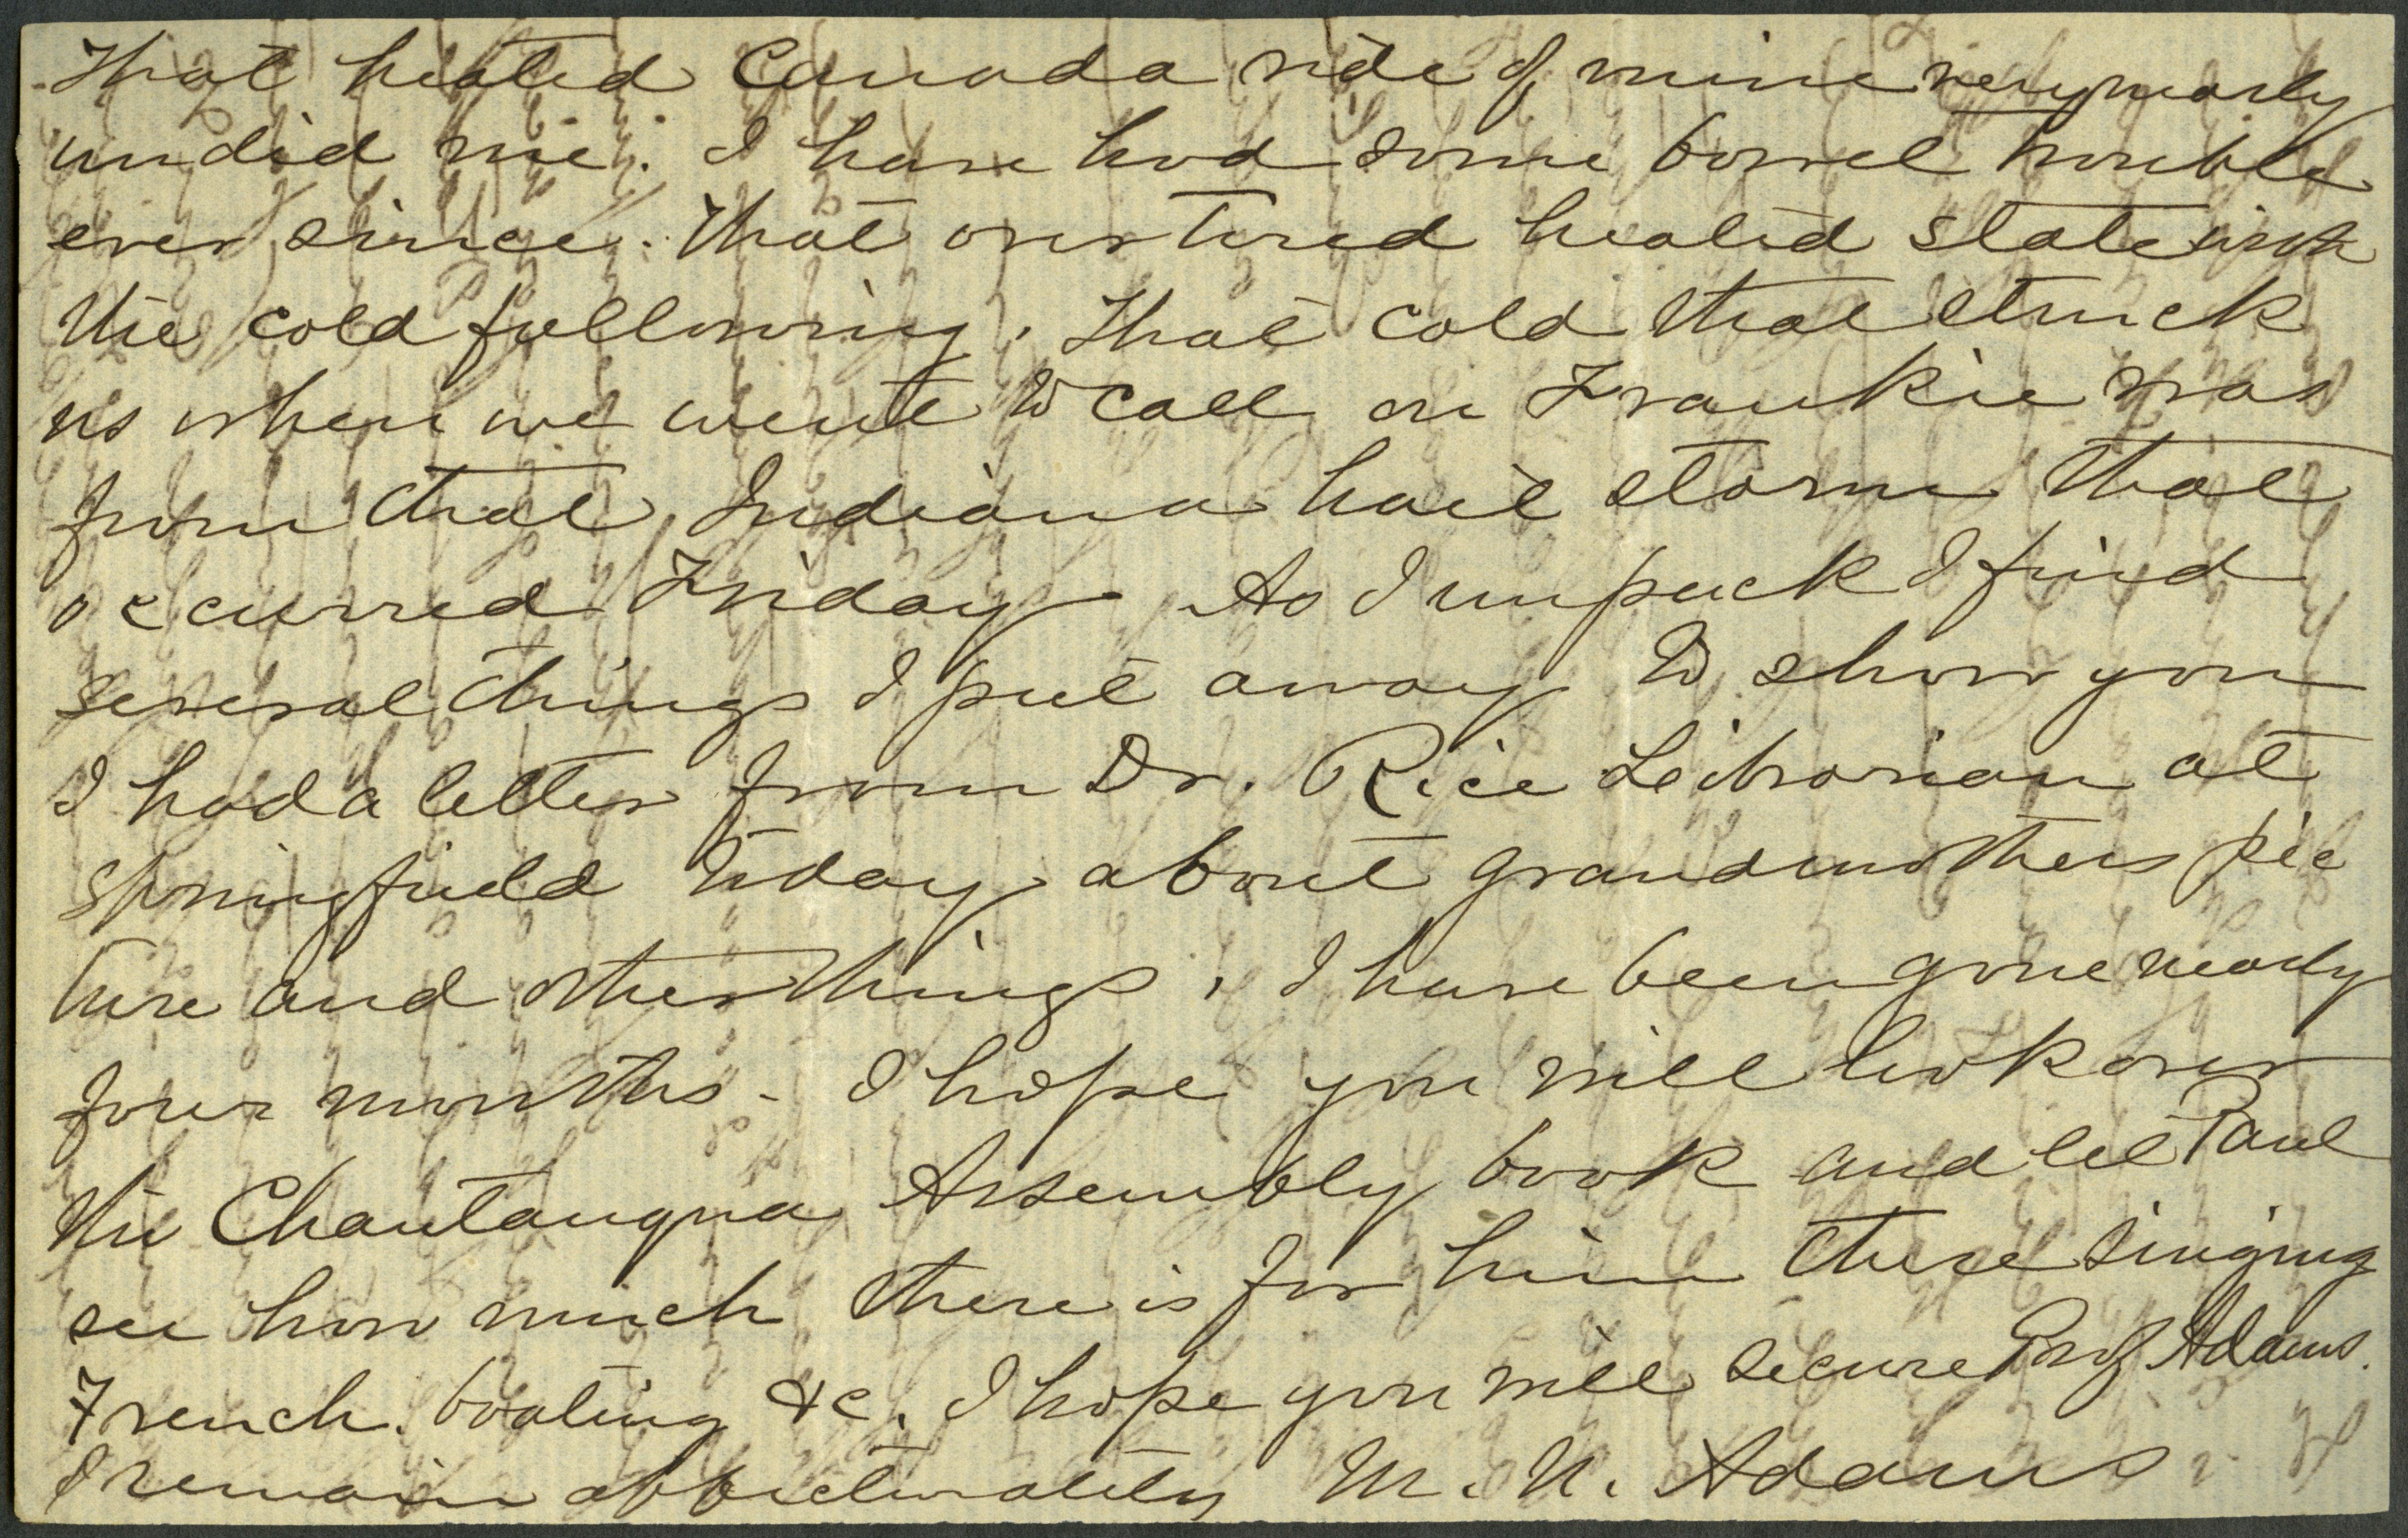 That heated Canada ride of mine very nearly
undid me. I have had some bowel trouble
ever since. That over tired heated state with
the cold following. That cold that struck
us when we went to call on Frankie was
from that Indiana hail storm that
occurred Friday - As I unpack I find
several things I put away to show you
I had a letter from Dr. Rice Leibrarian at
Springfield today about grandmothers pic
ture and other things. I have been gone nearly
four months - I hope you will look over
the Chautauqua Assembly book and let Paul
see how much there is for him there singing
French. boating &c. I hope you will secure Prof Adams.
I remain affectionately M. N. Adams